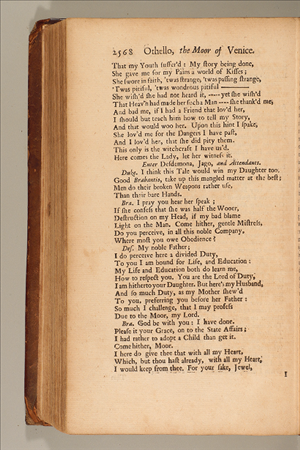 2568 Othello, the Moor of Venice.
That my Youth suffer'd: My story being done,
She gave me for my Pains a world of Kisses;
She swore in faith, 'twas strange, 'twas passing strange,
'Twas pitiful, 'twas wondrous pitiful ——
She wish'd she had not heard it, ---- yet she wish'd
That Heav'n had made her such a Man ---- she thank'd me,
And bad me, if I had a Friend that lov'd her,
I should but teach him how to tell my Story,
And that would woo her. Upon this hint I spake,
She lov'd me for the Dangers I have past,
And I lov'd her, that she did pity them.
This only is the witchcraft I have us'd.
Here comes the Lady, let her witness it.
Enter Desdemona, Jago, and Attendants.
Duke. I think this Tale would win my Daughter too.
Good Brabantio, take up this mangled matter at the best;
Men do their broken Weapons rather use,
Than their bare Hands.
Bra. I pray you hear her speak;
If she confess that she was half the Wooer,
Destruction on my Head, if my bad blame
Light on the Man. Come hither, gentle Mistress,
Do you perceive, in all this noble Company,
Where most you owe Obedience?
Des. My noble Father;
I do perceive here a divided Duty,
To you I am bound for Life, and Education:
My Life and Education both do learn me,
How to respect you. You are the Lord of Duty,
I am hitherto your Daughter. But here's my Husband,
And so much Duty, as my Mother shew'd
To you, preferring you before her Father:
So much I challenge, that I may profess
Due to the Moor, my Lord.
Bra. God be with you: I have done.
Please it your Grace, on to the State Affairs;
I had rather to adopt a Child than get it.
Come hither, Moor.
I here do give thee that with all my Heart,
Which, but thou hast already, with all my Heart,
I would keep from thee. For your sake, Jewel,
I